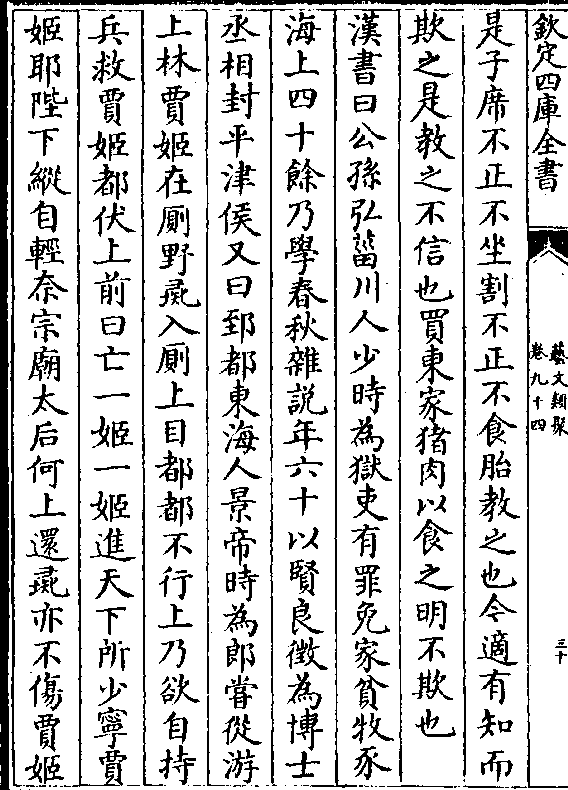 欽定四庫全書
藝文類聚
卷九十四
三十
是子席不正不坐割不正不食胎教之也今適有知而
欺之是教之不信也買東家猪肉以食之明不欺也
漢書曰公孫弘菑川人少時為獄吏有罪免家貧牧豕
海上四十餘乃學春秋雜説年六十以賢良徵為博士
丞相封平津侯又曰郅都東海人景帝時為郎嘗從游
上林賈姬在厠野彘入厠上目都都不行上乃欲自持
兵救賈姬都伏上前曰亡一姬一姬進天下所少寧賈
姬耶陛下縱自輕奈宗廟太后何上還彘亦不傷賈姬